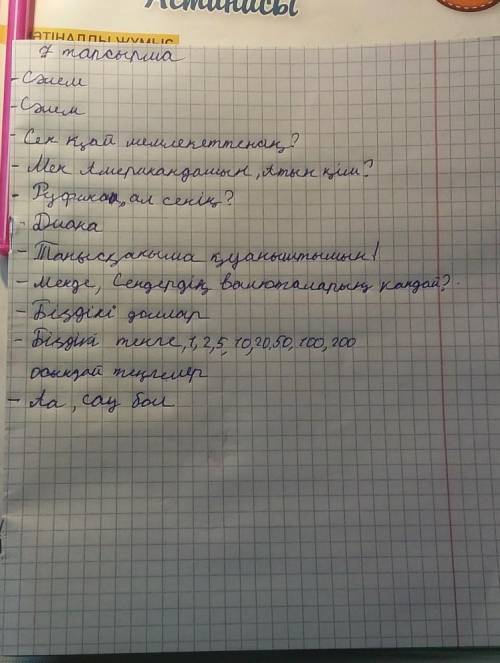 Астанасы
ӘТІНАЛДЫ ЖҰМЫС
7 тапсырма
- Сәлем
- Сәлем
- Сен қай мемлекеттенсің?
- Мен Америкаданмын, Атың кім?
- Руфина, ал сенің?
- Диана
- Танысқаныма қуаныштымын!
- Менде, Сендердің валюталарың қандай?
- Біздікі доллар
- Біздікі теңге, 1, 2, 5, 10, 20, 50, 100, 200
осындай теңгелер
- Аа, сау бол